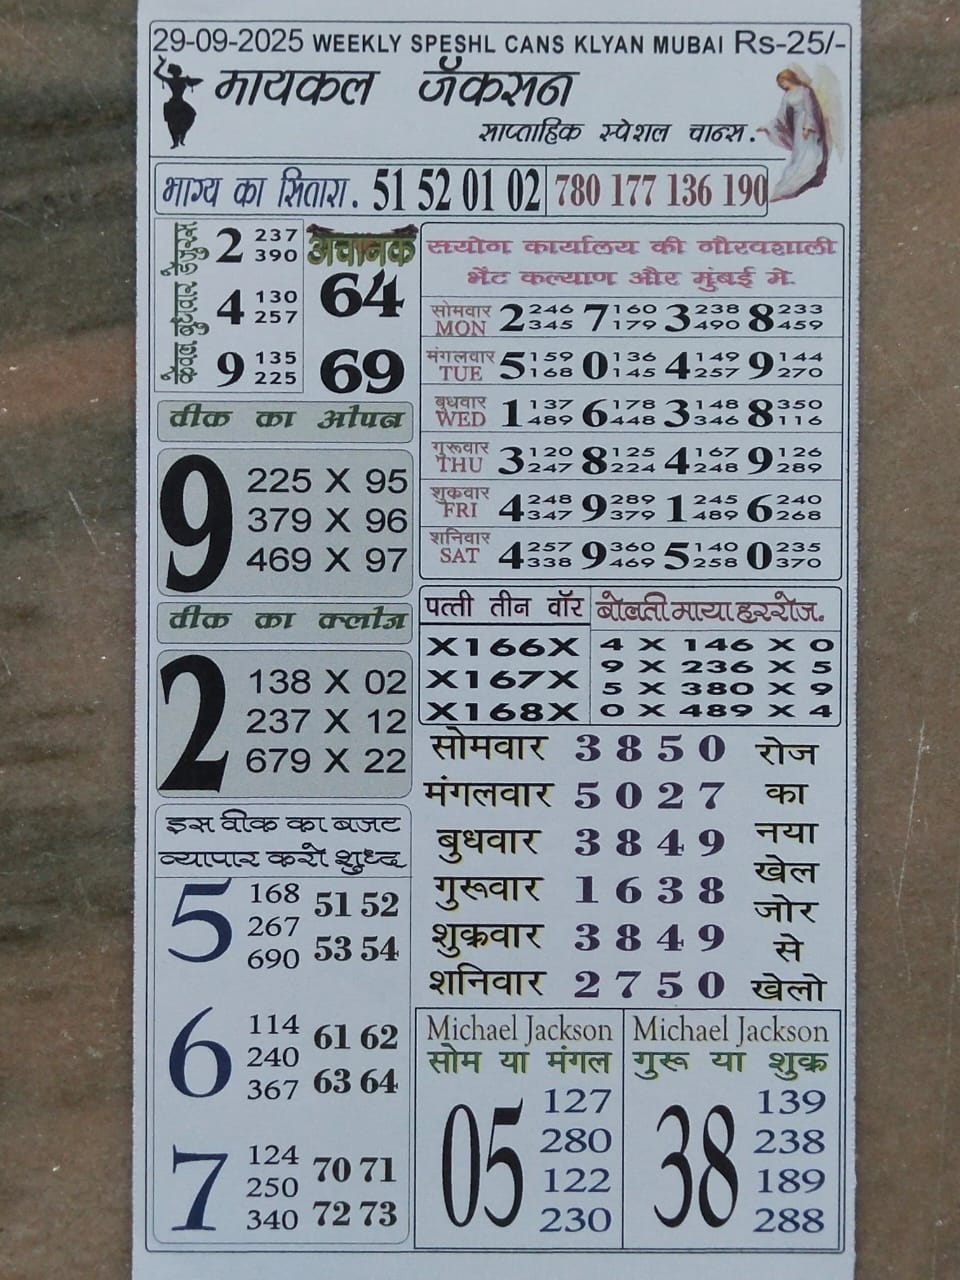 29-09-2025 WEEKLY SPESHL CANS KLYAN MUBAI Rs-25/-
मायकल जॅकसन
साप्ताहिक स्पेशल चान्स.
भाग्य का सितारा. 51 52 01 02 780 177 136 190
केवल बुधवार हेतुरस
2 237 390
4 130 257
9 135 225
अचानक
64
69
वीक का ओपन
9
225 X 95
379 X 96
469 X 97
वीक का क्लोज
2
138 X 02
237 X 12
679 X 22
इस वीक का बजट
व्यापार करो शुध्द
5
168 51 52
267
690 53 54
6
114 61 62
240
367 63 64
7
124 70 71
250
340 72 73
सयोग कार्यालय की गौरवशाली
भेंट कल्याण और मुंबई मे.
सोमवार MON 2 246 345 7 160 179 3 238 490 8 233 459
मंगलवार TUE 5 159 168 0 136 145 4 149 257 9 144 270
बुधवार WED 1 137 489 6 178 448 3 148 346 8 350 116
गुरूवार THU 3 120 247 8 125 224 4 167 248 9 126 289
शुक्रवार FRI 4 248 347 9 289 379 1 245 489 6 240 268
शनिवार SAT 4 257 338 9 360 469 5 140 258 0 235 370
पत्ती तीन वॉर
X166X
X167X
X168X
बोलती माया हररोज.
4 X 146 X 0
9 X 236 X 5
5 X 380 X 9
0 X 489 X 4
सोमवार 3 8 5 0 रोज
मंगलवार 5 0 2 7 का
बुधवार 3 8 4 9 नया
गुरूवार 1 6 3 8 खेल
जोर
शुक्रवार 3 8 4 9 से
शनिवार 2 7 5 0 खेलो
Michael Jackson
सोम या मंगल
05
127
280
122
230
Michael Jackson
गुरू या शुक्र
38
139
238
189
288